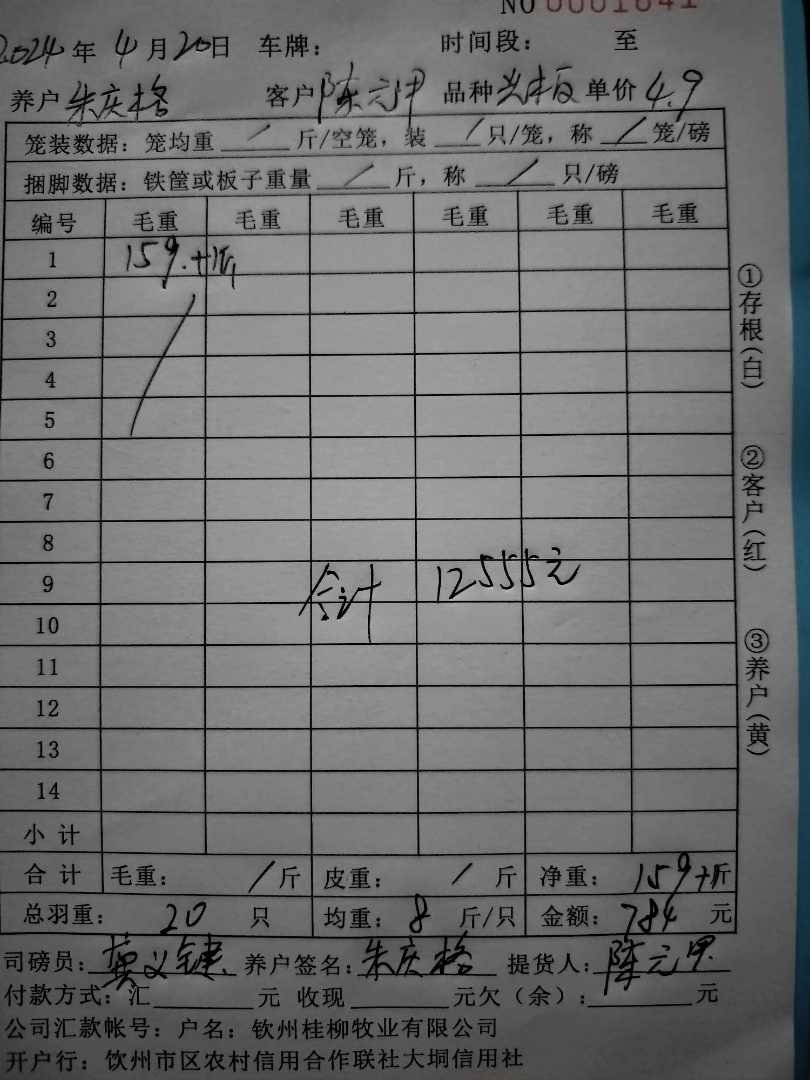 NO 0001641
2024年4月20日 车牌： 时间段： 至
养户 朱庆格 客户 陈元甲 品种 光板 单价 4.9
笼装数据：笼均重 / 斤/空笼，装 / 只/笼，称 / 笼/磅
捆脚数据：铁筐或板子重量 / 斤，称 / 只/磅
编号 毛重 毛重 毛重 毛重 毛重 毛重
1 159.+斤
2
3
4
5
6
7
8
9 合计 12555元
10
11
12
13
14
小计
合计 毛重： / 斤 皮重： / 斤 净重： 159+斤
总羽重： 20 只 均重： 8 斤/只 金额： 784 元
司磅员： 养户签名：朱庆格 提货人：陈元甲
付款方式：汇 元 收现 元欠（余）： 元
公司汇款帐号：户名：钦州桂柳牧业有限公司
开户行：饮州市区农村信用合作联社大垌信用社
①存根（白）
②客户（红）
③养户（黄）